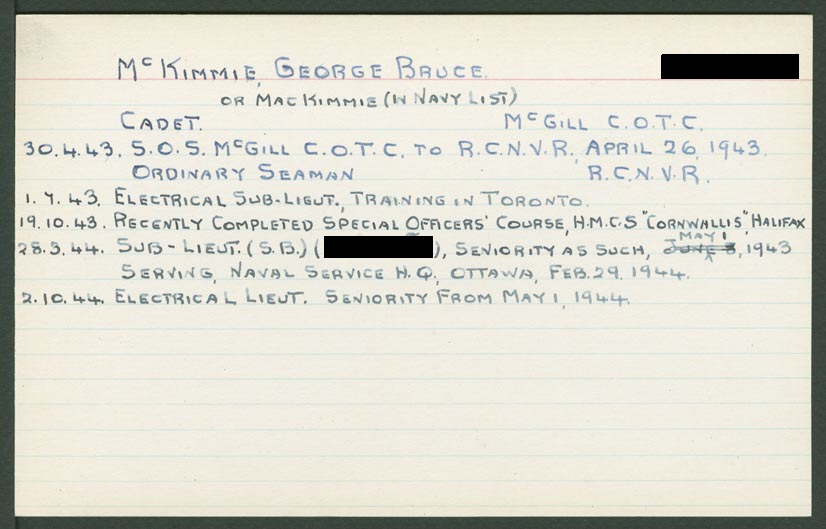 McKIMMIE, GEORGE BRUCE.
OR MACKIMMIE (IN NAVY LIST)
CADET. McGILL C.O.T.C.
30.4.43. S.O.S. McGILL C.O.T.C. TO R.C.N.V.R., APRIL 26, 1943.
ORDINARY SEAMAN R.C.N.V.R.
1.7.43. ELECTRICAL SUB-LIEUT., TRAINING IN TORONTO.
19.10.43. RECENTLY COMPLETED SPECIAL OFFICERS' COURSE, H.M.C.S "CORNWALLIS" HALIFAX
28.3.44. SUB-LIEUT. (S.B.) ( ), SENIORITY AS SUCH, MAY 1, 1943
SERVING, NAVAL SERVICE H.Q., OTTAWA, FEB. 29, 1944.
2.10.44. ELECTRICAL LIEUT. SENIORITY FROM MAY 1, 1944.